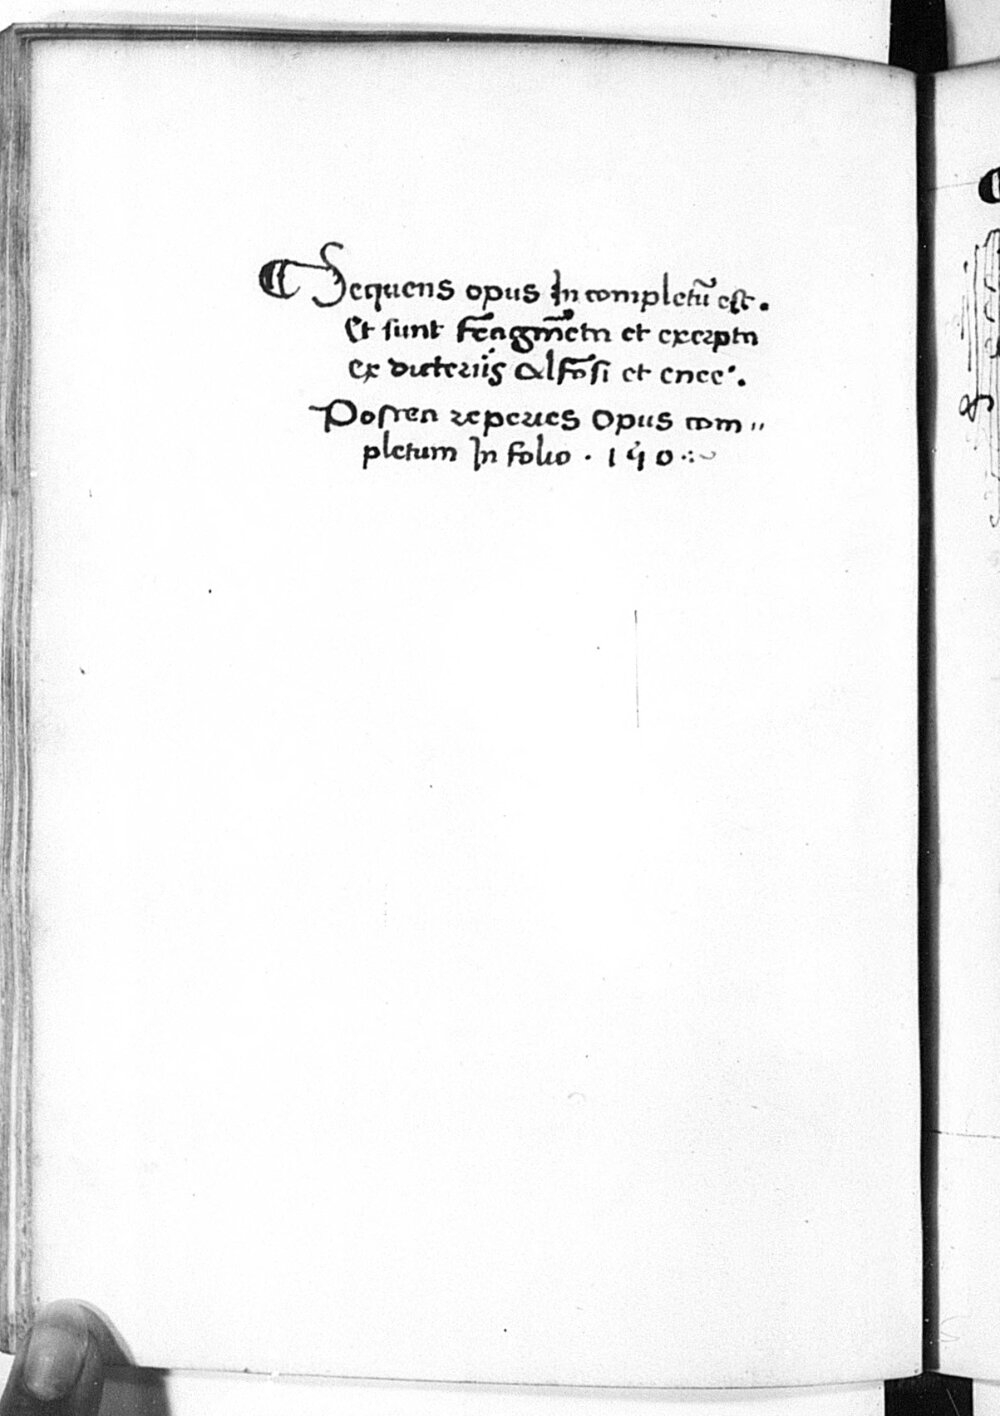 Sequens opus Incompletū est.
Et sunt fragm̄eta et exerpta
ex dicteriis Alfōsi et enee.
Postea reperies Opus com„
pletum In folio . 190 .